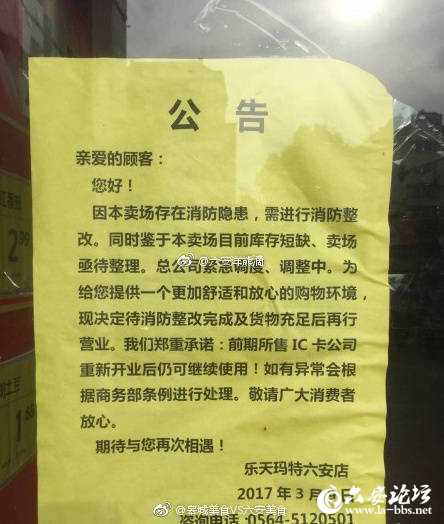 公 告
亲爱的顾客：
您好！
因本卖场存在消防隐患，需进行消防整
改。同时鉴于本卖场目前库存短缺、卖场
亟待整理。总公司紧急调度、调整中。为
给您提供一个更加舒适和放心的购物环境，
现决定待消防整改完成及货物充足后再行
营业。我们郑重承诺：前期所售 IC 卡公司
重新开业后仍可继续使用！如有异常会根
据商务部条例进行处理。敬请广大消费者
放心。
期待与您再次相遇！
乐天玛特六安店
2017 年 3 月 日
咨询电话:0564-5120501
@皋城美食VS六安美食
六安论坛
www.la-bbs.net